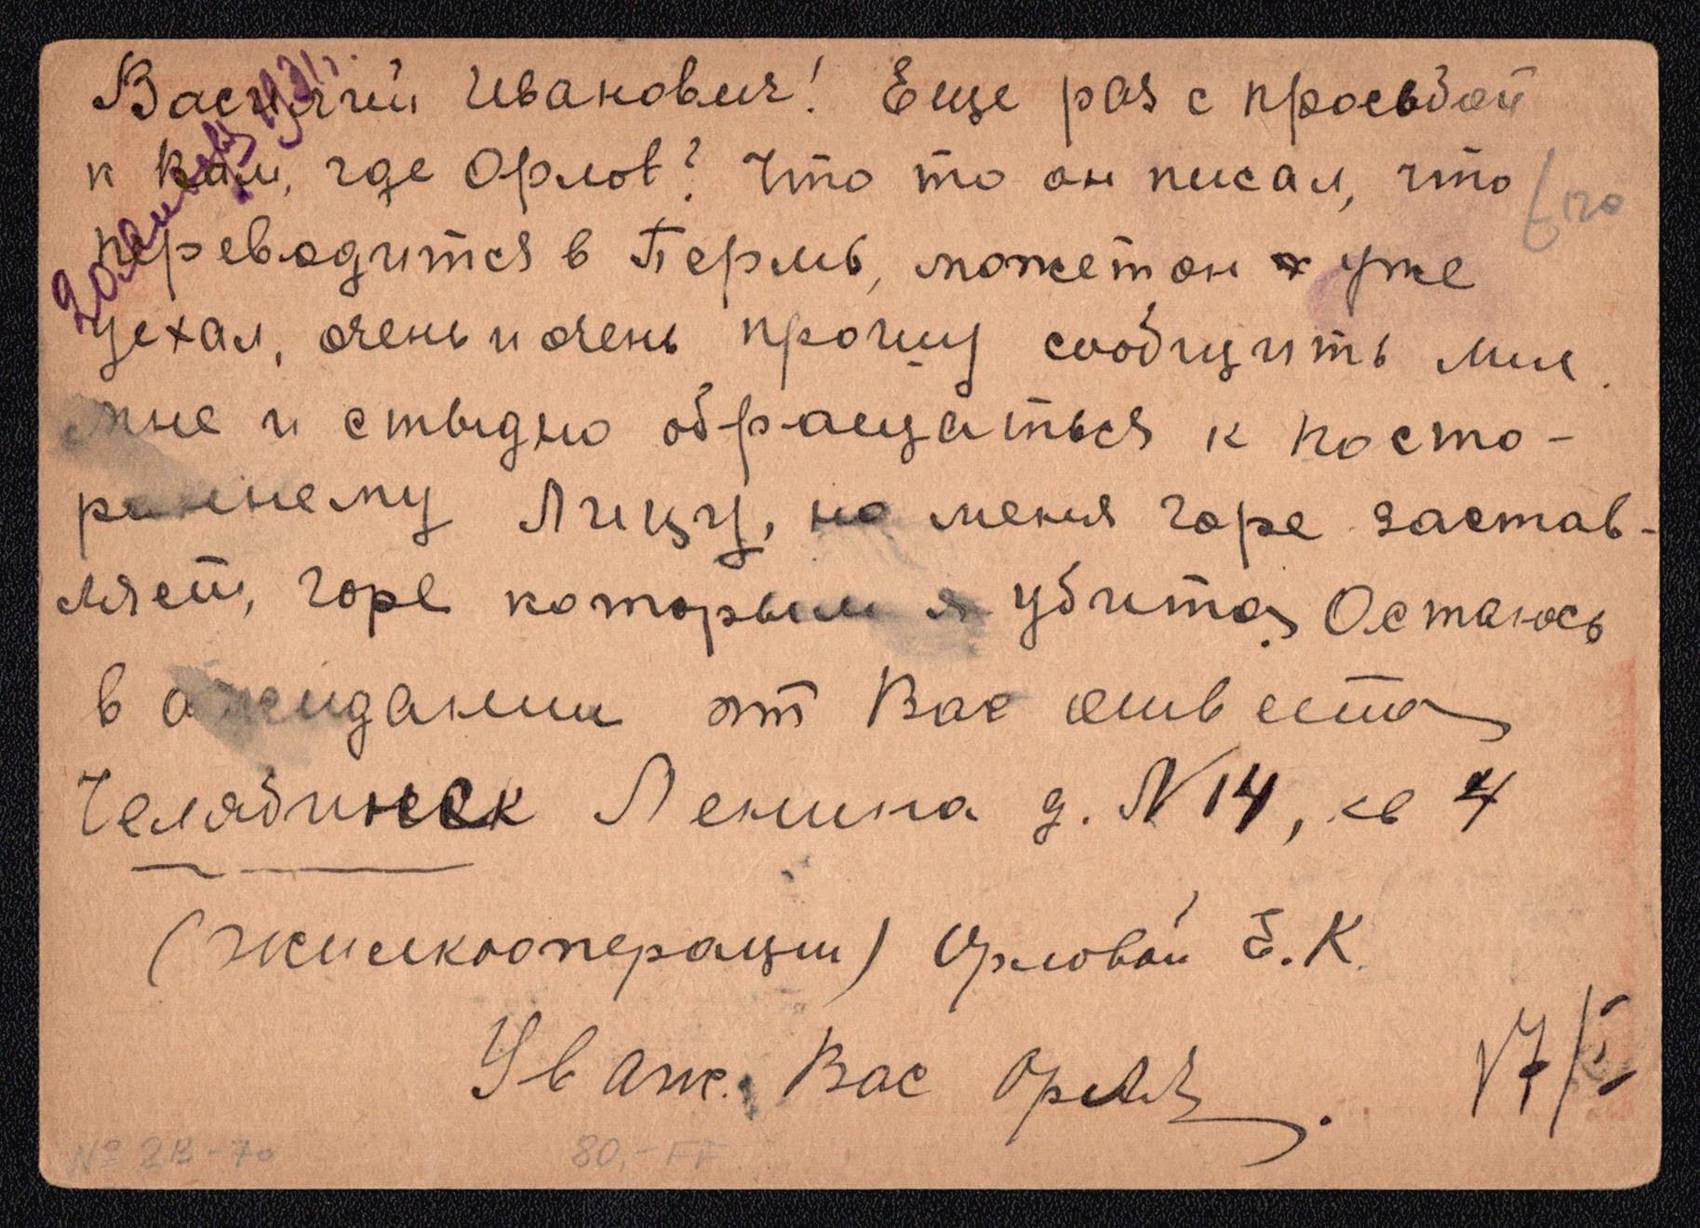 Василий Иванович! Еще раз с просьбой
к Вам, где Орлов? Что то он писал, что
переводится в Пермь, может он уже
уехал, очень и очень прошу сообщить мне.
мне и стыдно обращаться к посто-
роннему Лицу, но меня горе застав-
ляет, горе которым я убита, Остаюсь
в ожидании от Вас ответа
Челябинск Ленина д. N 14, кв 4
(Жилкооперации) Орловой Е.К.
Уваж. Вас
17/I
№ 2B-70 80,- FF